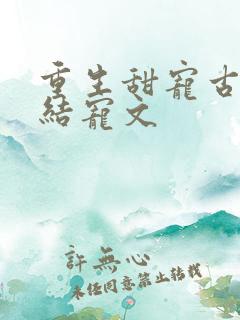 重生甜寵古
結寵文
許無心
未经同意禁止转载